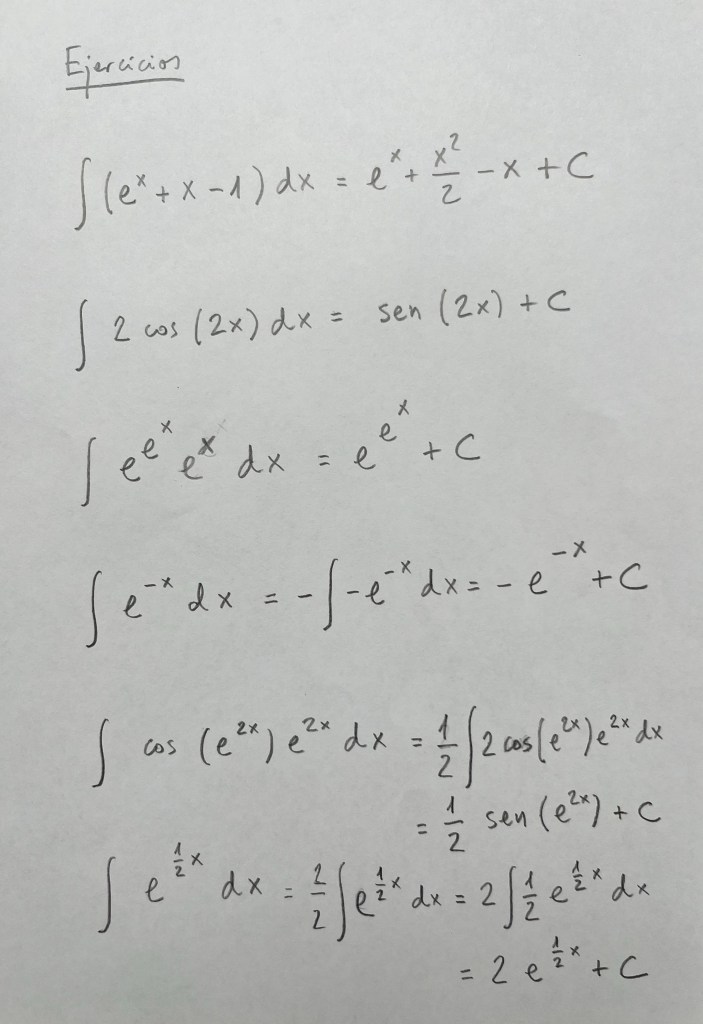 Ejercicios
∫(eˣ + x − 1) dx = eˣ + x²/2 − x + C
∫ 2 cos (2x) dx = sen (2x) + C
∫ e^(e^x) e^x dx = e^(e^x) + C
∫ e^(−x) dx = −∫−e^(−x) dx = −e^(−x) + C
∫ cos (e^(2x)) e^(2x) dx = 1/2 ∫ 2 cos(e^(2x)) e^(2x) dx
= 1/2 sen (e^(2x)) + C
∫ e^(1/2 x) dx = 2/2 ∫ e^(1/2 x) dx = 2 ∫ 1/2 e^(1/2 x) dx
= 2 e^(1/2 x) + C